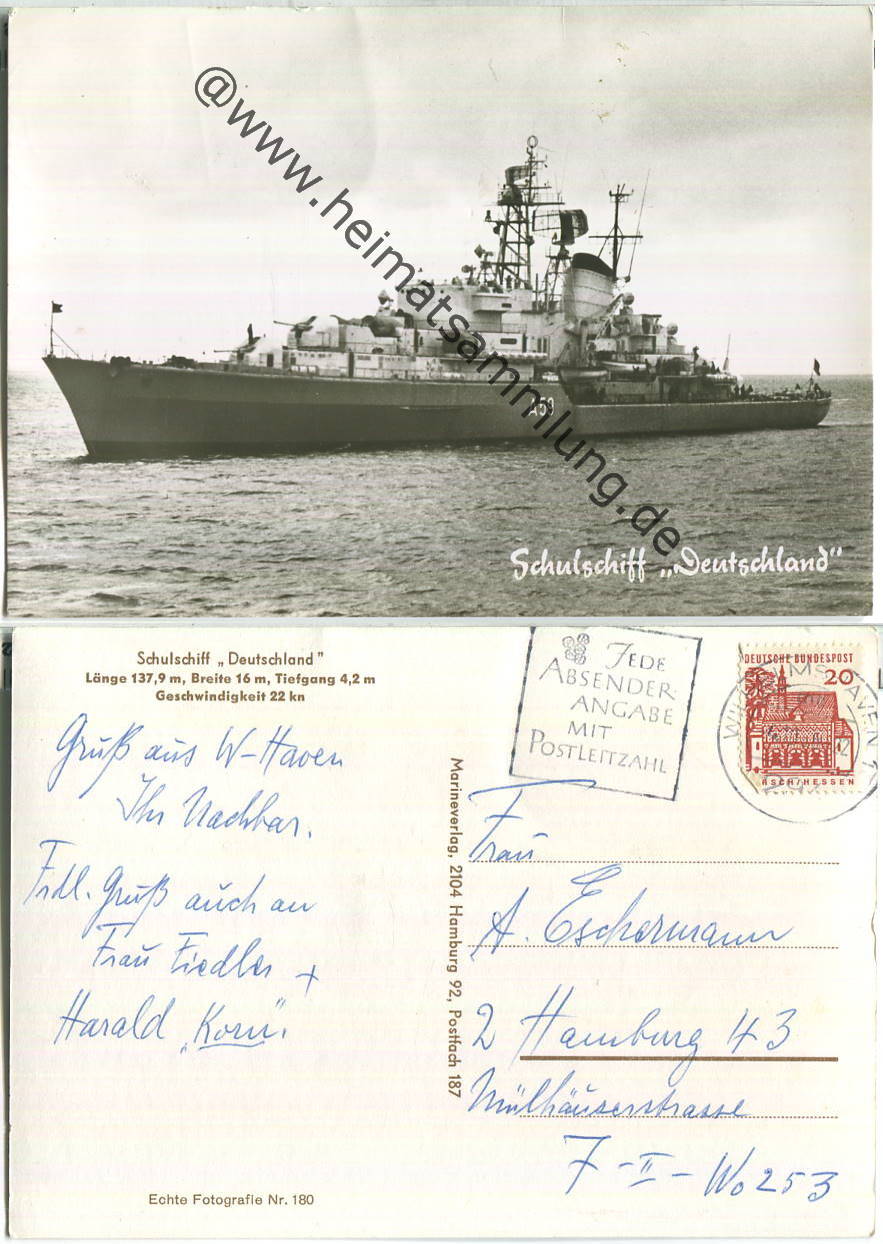 @www.heimatsammlung.de
A59
Schulschiff „Deutschland"
Schulschiff „Deutschland"
Länge 137,9 m, Breite 16 m, Tiefgang 4,2 m
Geschwindigkeit 22 kn
Gruß aus W-Haven
Ihr Nachbar.
Frdl. Gruß auch an
Frau Fiedler +
Harald „Korn".
Echte Fotografie Nr. 180
Marineverlag, 2104 Hamburg 92, Postfach 187
JEDE
ABSENDER-
ANGABE
MIT
POSTLEITZAHL
DEUTSCHE BUNDESPOST
20
RSCH/HESSEN
Frau
A. Eschermann
2 Hamburg 43
Mülhäuserstrasse
7-II-Wo 253